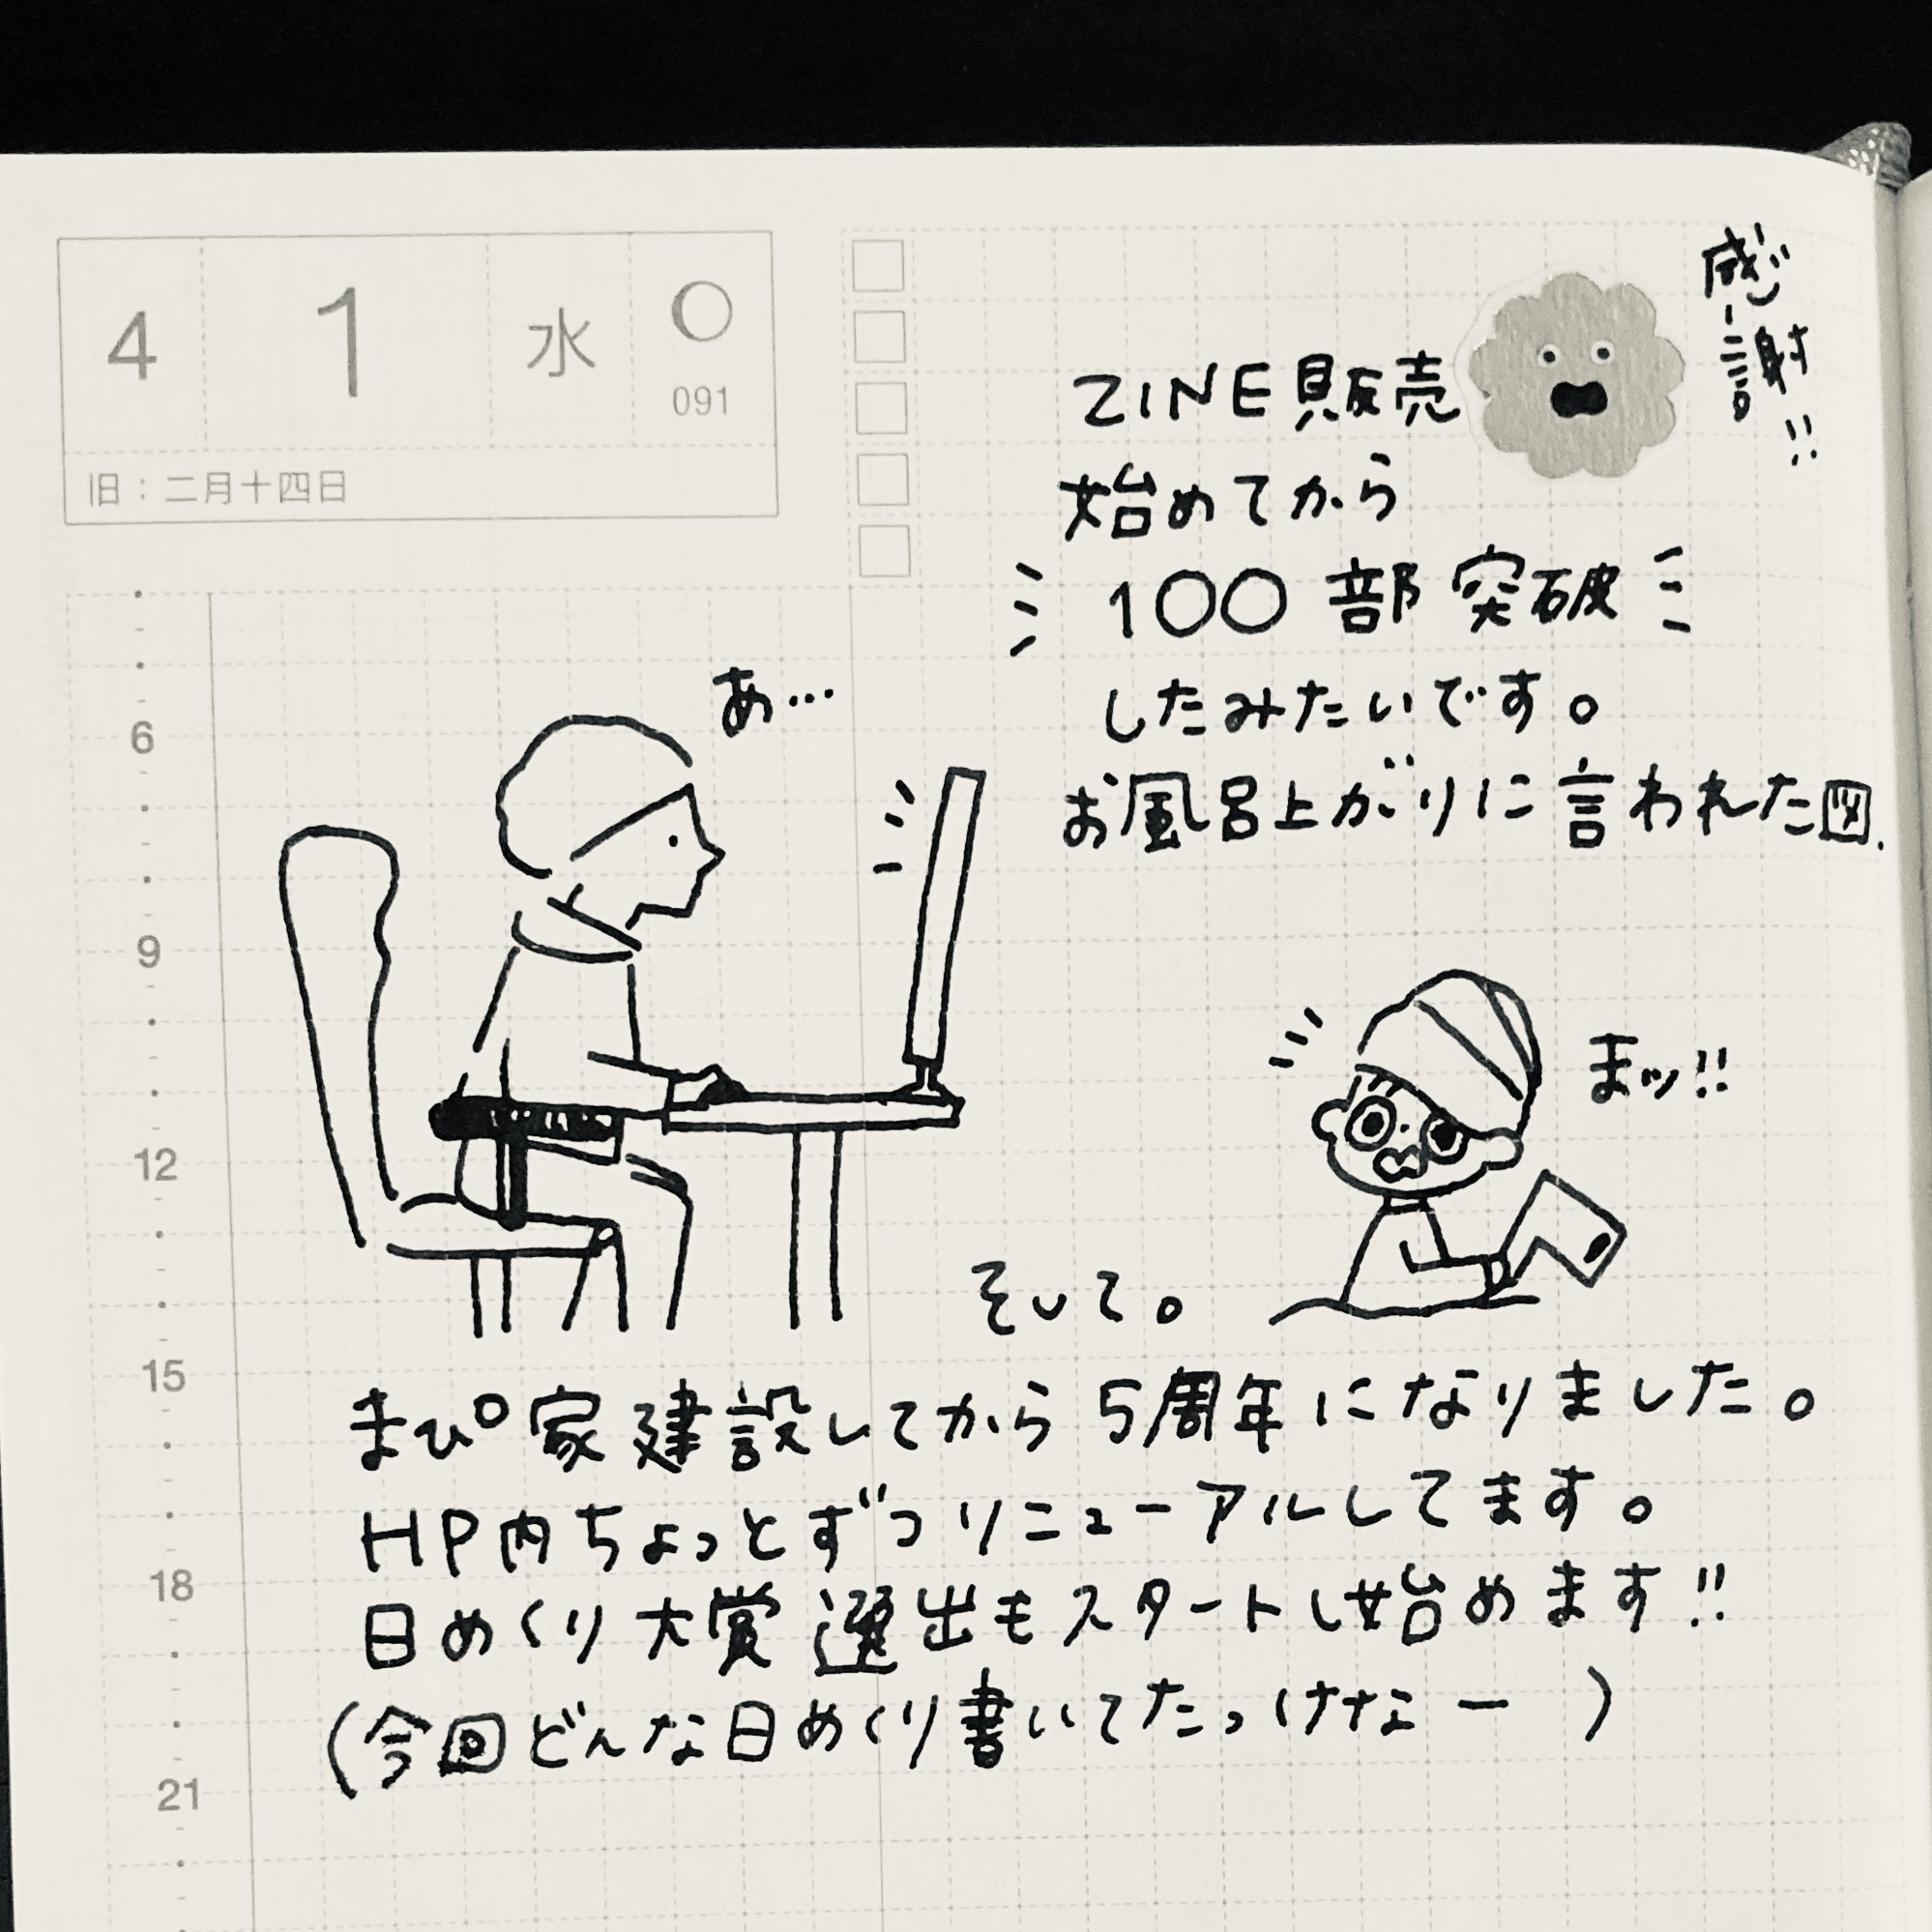 4 1 水
091
旧：二月十四日
感謝!!
ZINE販売
始めてから
100部突破
したみたいです。
お風呂上がりに言われた図.
あ…
まッ!!
そして。
まぴ家建設してから5周年になりました。
HP内ちょっとずつリニューアルしてます。
日めくり大賞選出もスタートし始めます!!
(今回どんな日めくり書いてたっけなー)
6
9
12
15
18
21